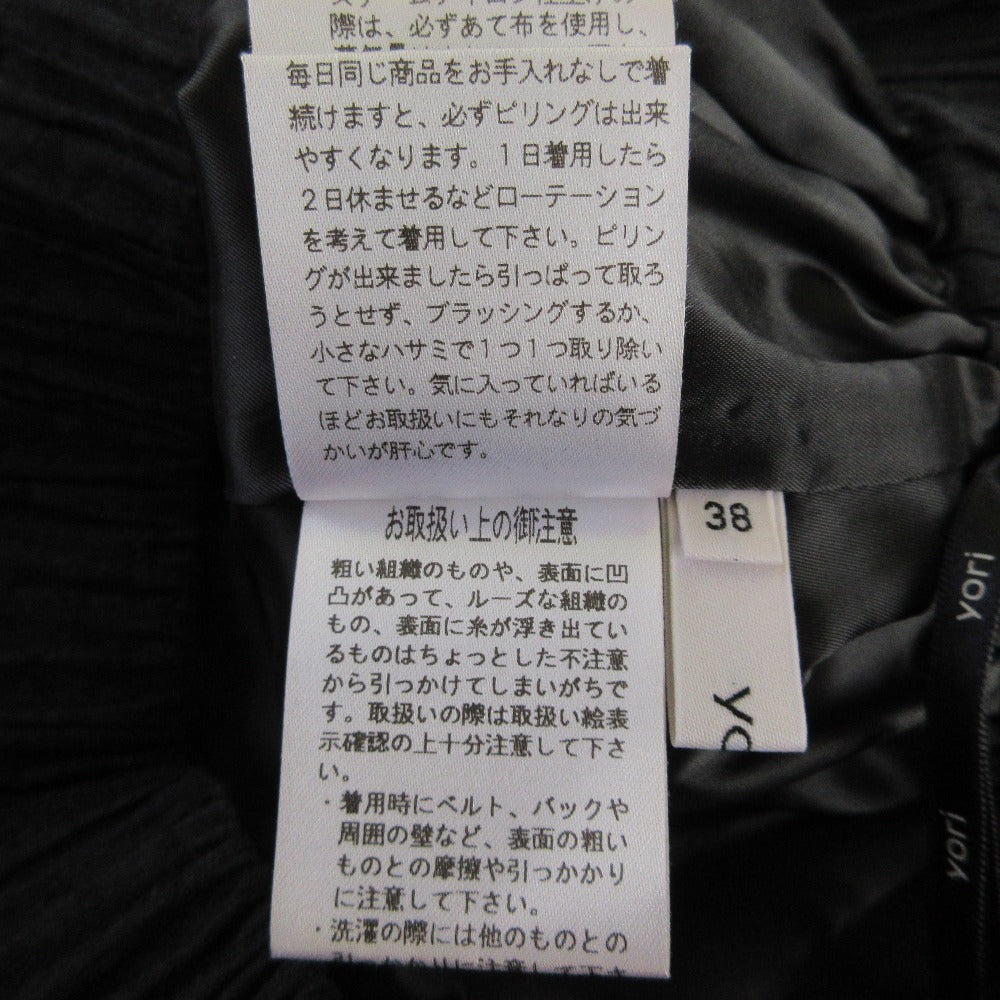 際は、必ずあて布を使用し、
毎日同じ商品をお手入れなしで着
続けますと、必ずピリングは出来
やすくなります。1日着用したら
2日休ませるなどローテーション
を考えて着用して下さい。ピリン
グが出来ましたら引っぱって取ろ
うとせず、ブラッシングするか、
小さなハサミで1つ1つ取り除い
て下さい。気に入っていればいる
ほどお取扱いにもそれなりの気づ
かいが肝心です。
お取扱い上の御注意
粗い組織のものや、表面に凹
凸があって、ルーズな組織の
もの、表面に糸が浮き出てい
るものはちょっとした不注意
から引っかけてしまいがちで
す。取扱いの際は取扱い絵表
示確認の上十分注意して下さ
い。
・着用時にベルト、バックや
周囲の壁など、表面の粗い
ものとの摩擦や引っかかり
に注意して下さい。
・洗濯の際には他のものとの
引っかかりに注意して下さ
38
yo
yori
yori